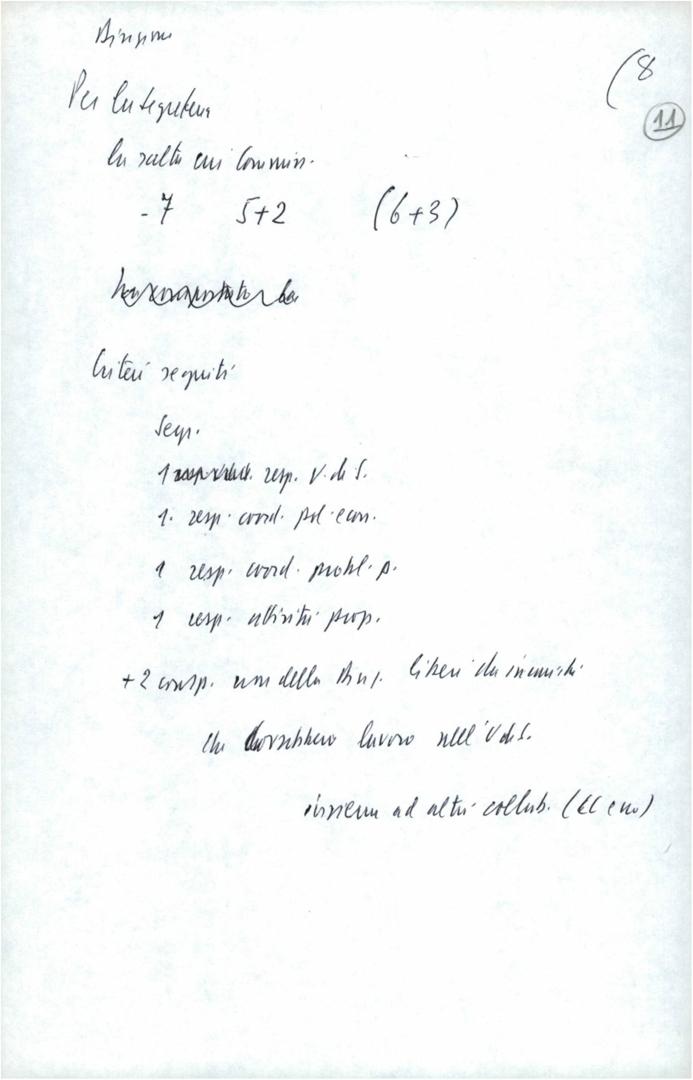 Direzione
(8
11
Per la segreteria
la scelta cui Commiss.
- 7 5+2 (6+3)
Criteri seguiti
Segr.
1 resp. V. di S.
1. resp. coord. pol. econ.
1 resp. coord. probl. p.
1 resp. attività prop.
+2 comp. della Direz. liberi da incarichi
che dovrebbero lavoro nell'V di S.
insieme ad altri collab. (CC e no)